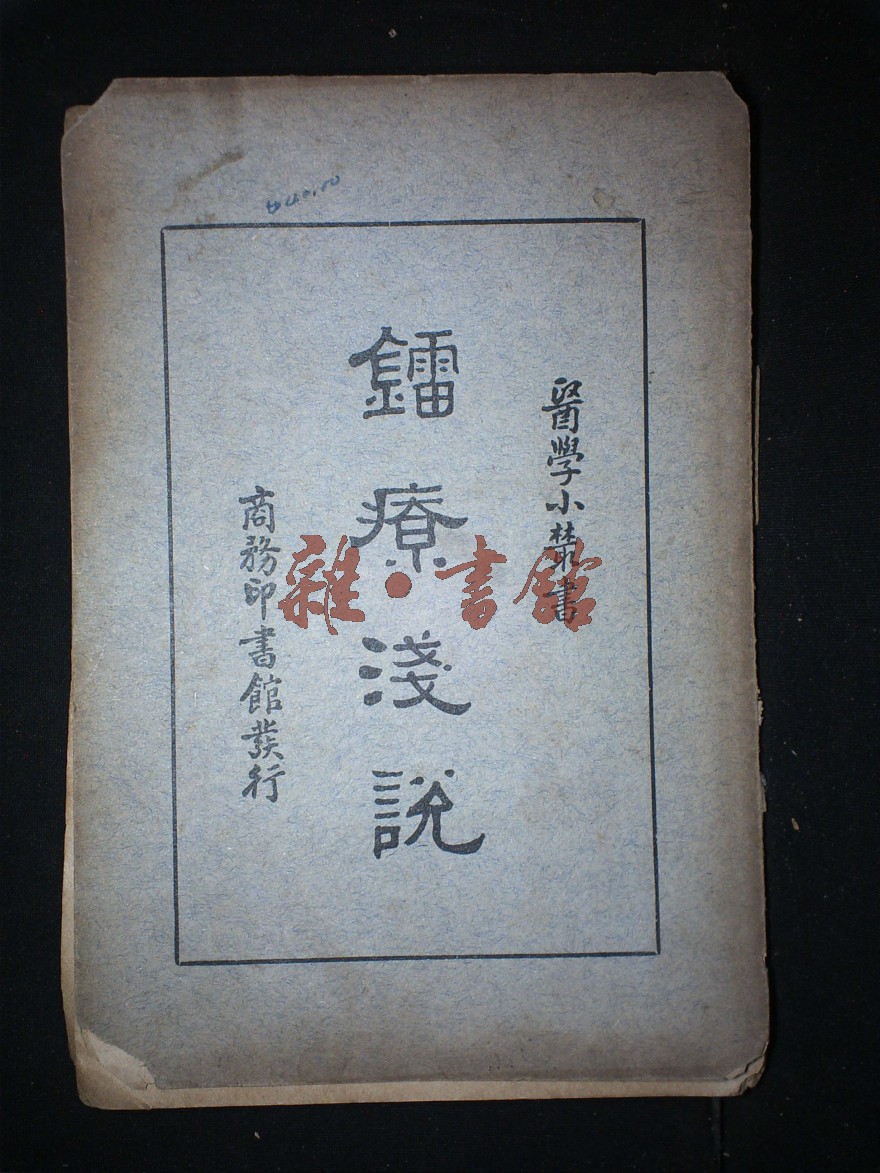 醫學小叢書
鐳療淺說
商務印書館發行
雜·書館